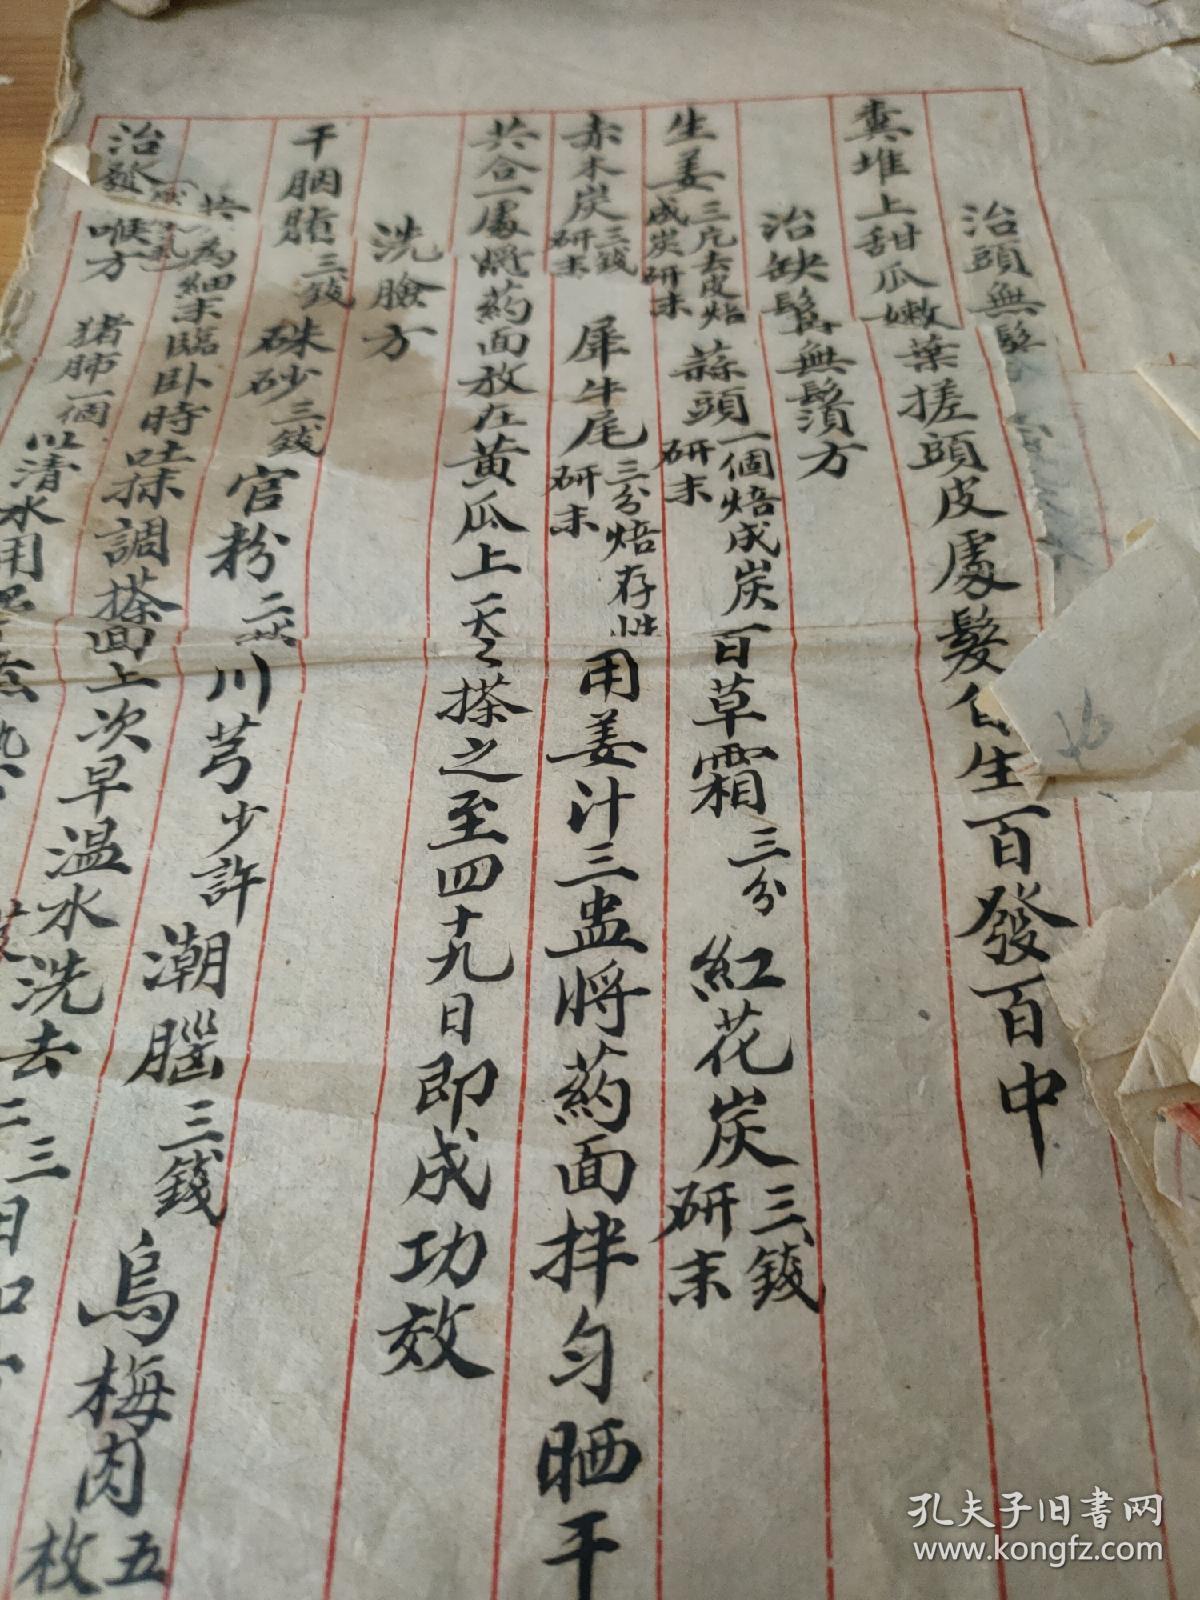 治頭無髮
糞堆上甜瓜嫩葉搓頭皮處髮自生百發百中
治缺鬍無鬚方
生姜三片去皮焙成炭研末 蒜頭一個焙成炭研末 百草霜三分 紅花炭三錢研末
赤木炭三錢研末 犀牛尾三分焙存性研末 用姜汁三盅將药面拌勻晒干
共合一處將药面放在黄瓜上天天搽之至四十九日即成功效
洗臉方
干胭脂三錢 硃砂三錢 官粉 川芎少許 潮腦三錢 烏梅肉五枚
共為細末臨卧時吐抹調搽面上次早温水洗去二三日
治 喉方 猪肺一個 以清水用
孔夫子旧书网
www.kongfz.com